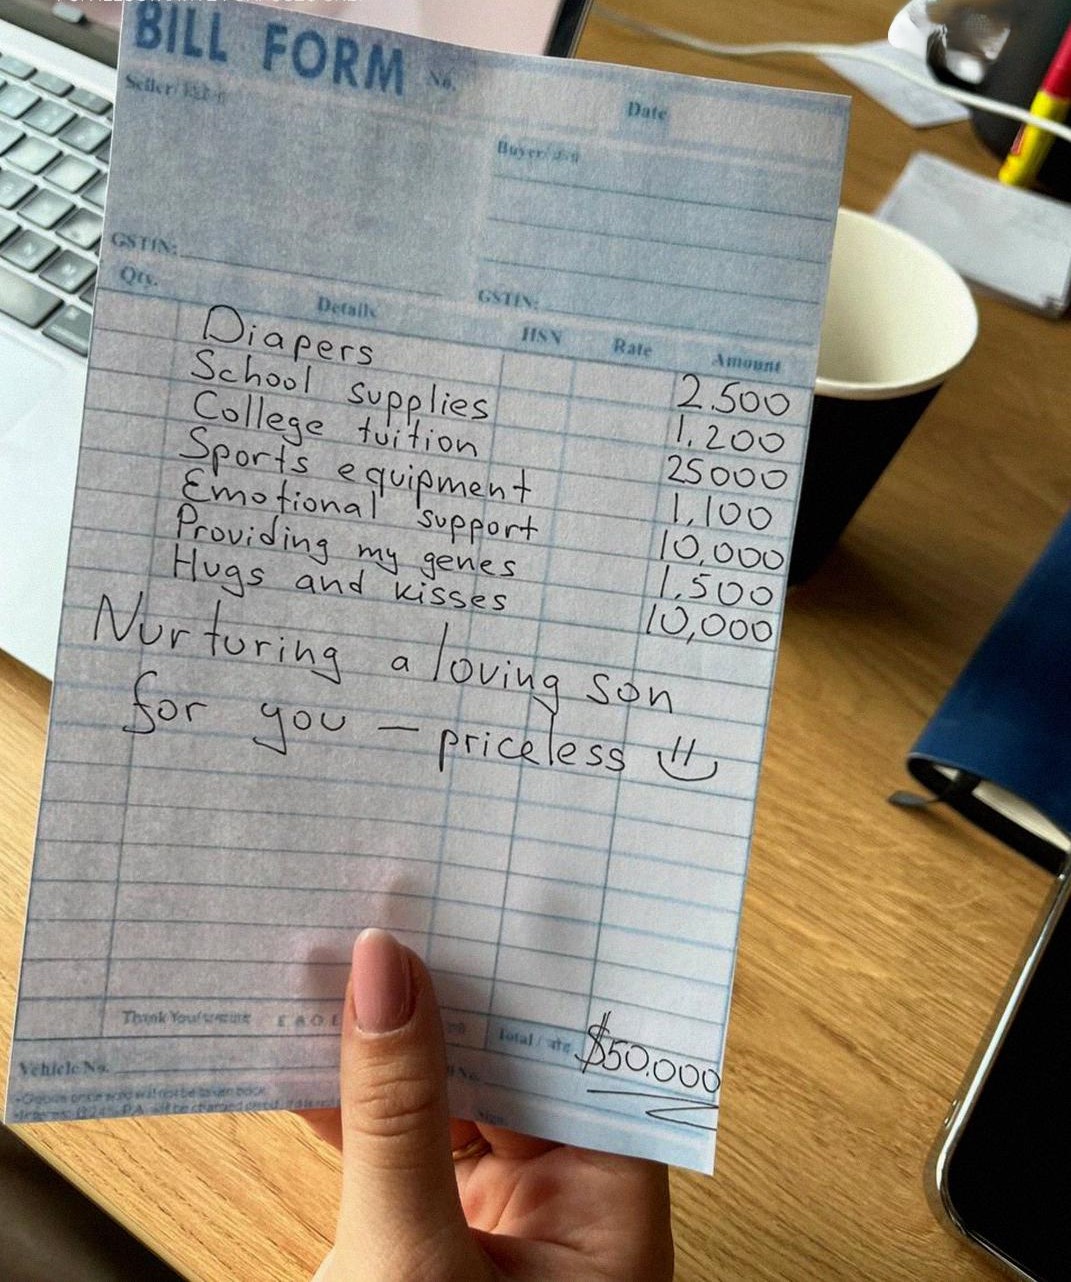 BILL FORM No.
Date
Seller/
Buyer/
GSTIN:
GSTIN:
Qty. Details HSN Rate Amount
Diapers 2.500
School supplies 1.200
College tuition 25000
Sports equipment 1,100
Emotional support 10,000
Providing my genes 1,500
Hugs and kisses 10,000
Nurturing a loving son
for you — priceless
Thank You/ E & O.E
Total / जोड़ $50.000
Vehicle No.
Sign.